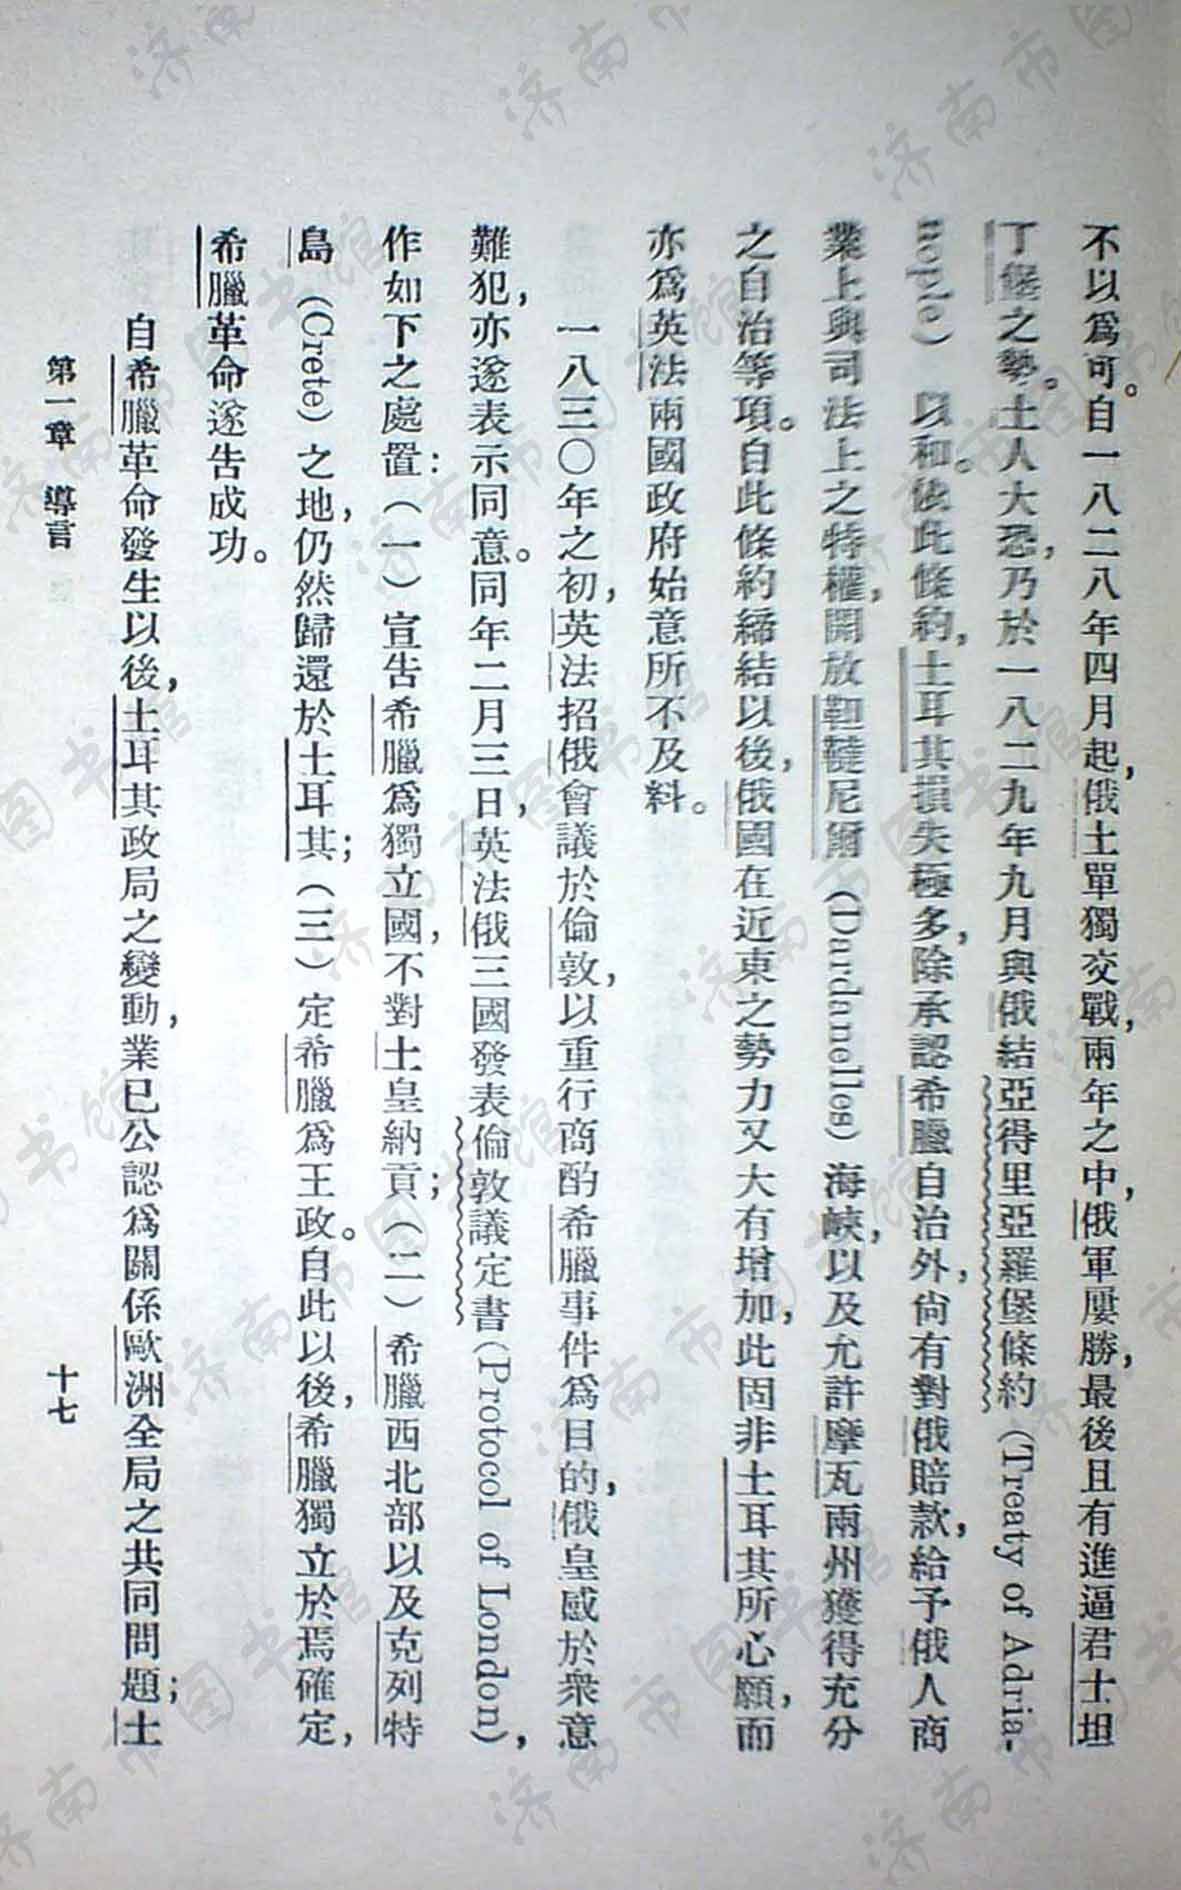 不以爲可。自一八二八年四月起，俄土單獨交戰，兩年之中，俄軍屢勝，最後且有進逼君士坦
丁堡之勢。土人大恐，乃於一八二九年九月與俄結亞得里亞羅堡條約（Treaty of Adria-
nople）以和。依此條約，土耳其損失極多，除承認希臘自治外，尙有對俄賠款，給予俄人商
業上與司法上之特權，開放韃靼尼爾（Dardanelles）海峽，以及允許摩瓦兩州獲得充分
之自治等項。自此條約締結以後，俄國在近東之勢力又大有增加，此固非土耳其所心願，而
亦爲英法兩國政府始意所不及料。
一八三〇年之初，英法招俄會議於倫敦，以重行商酌希臘事件爲目的，俄皇感於衆意
難犯，亦遂表示同意。同年二月三日，英法俄三國發表倫敦議定書（Protocol of London），
作如下之處置：（一）宣告希臘爲獨立國，不對土皇納貢；（二）希臘西北部以及克列特
島（Crete）之地，仍然歸還於土耳其；（三）定希臘爲王政。自此以後，希臘獨立於焉確定，
希臘革命遂告成功。
自希臘革命發生以後，土耳其政局之變動，業已公認爲關係歐洲全局之共同問題；土
第一章 導言
十七
济南市图书馆